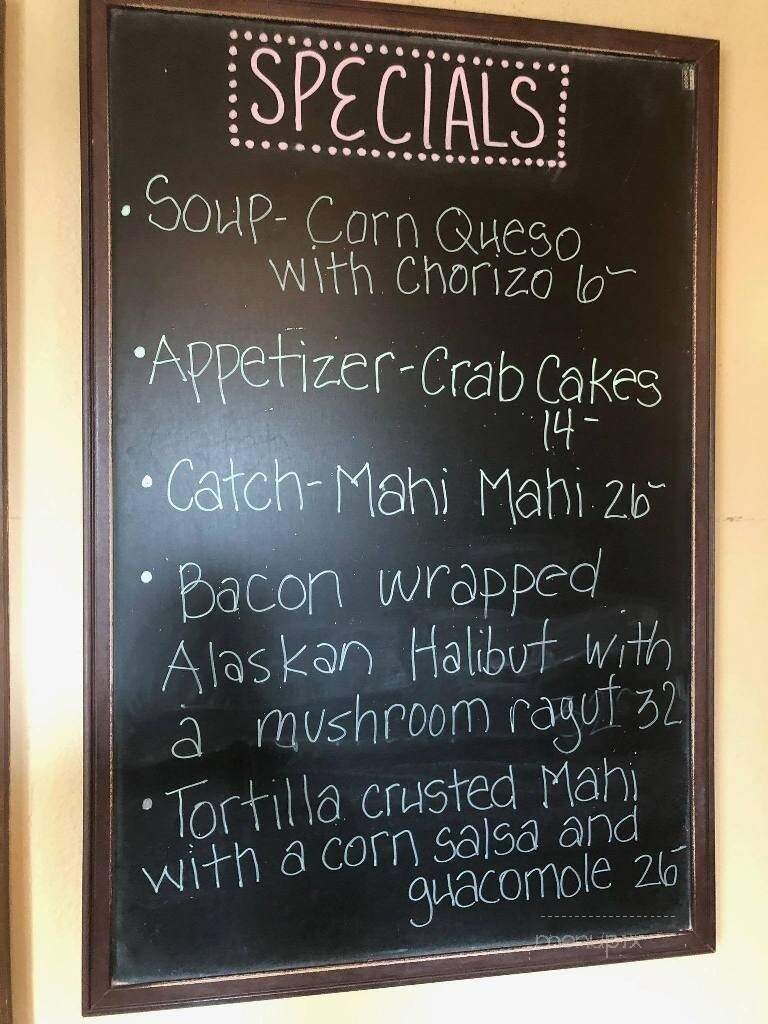 SPECIALS
• Soup- Corn Queso
with Chorizo 6-
• Appetizer-Crab Cakes
14-
• Catch-Mahi Mahi 26-
• Bacon wrapped
Alaskan Halibut with
a mushroom ragut 32
• Tortilla crusted Mahi
with a corn salsa and
guacomole 26-
menupix